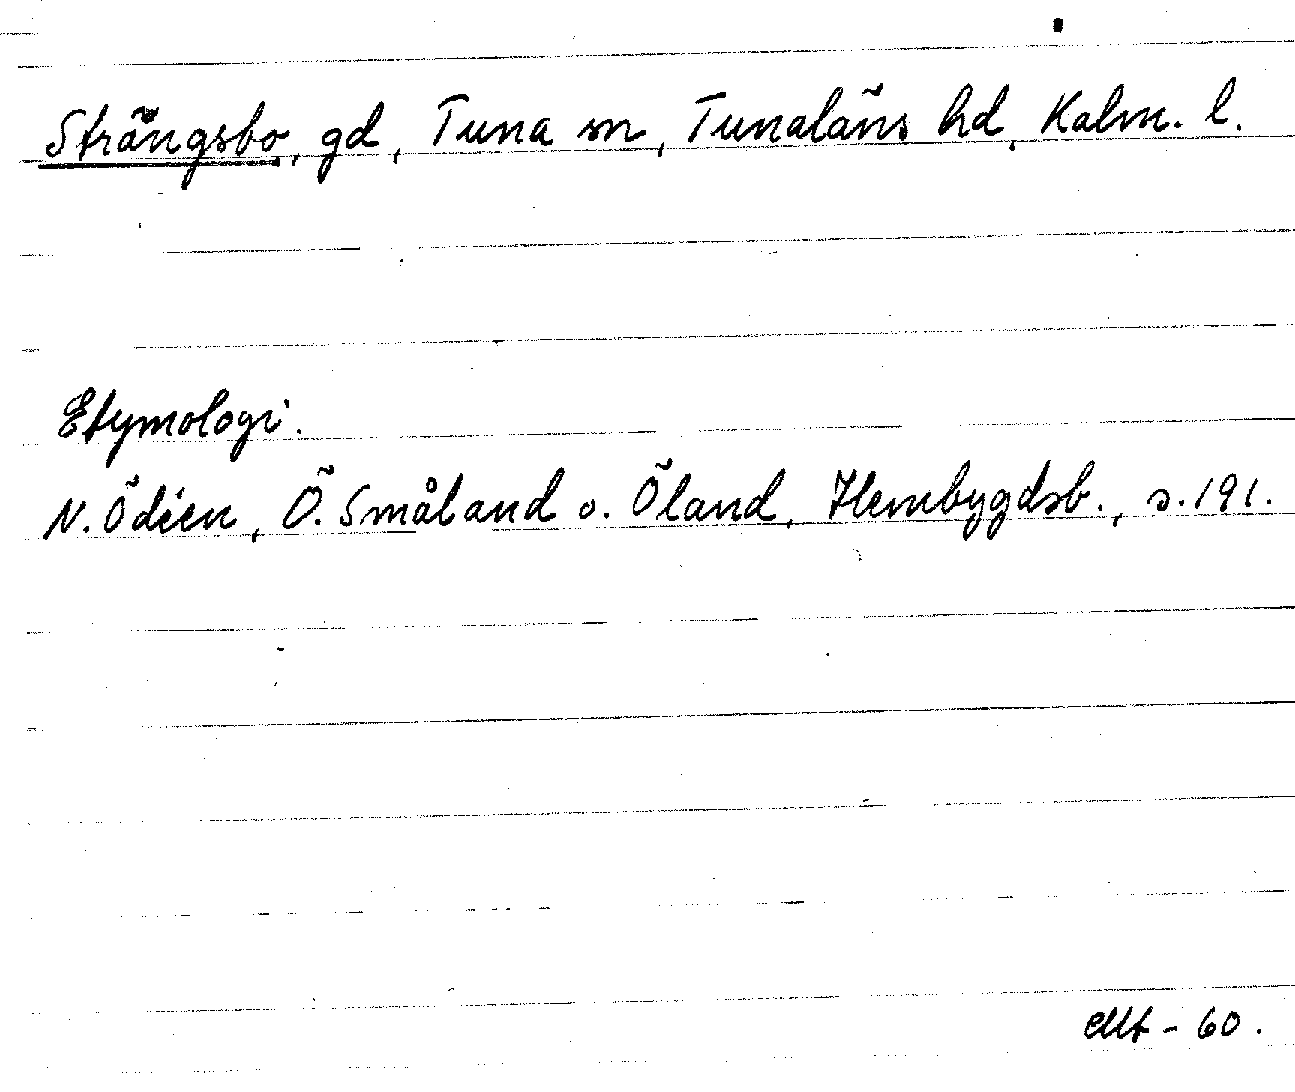 Strängsbo, gd, Tuna sn, Tunaläns hd, Kalm. l.
Etymologi.
N. Ödéen, Ö. Småland o. Öland, Hembygdsb., s. 191.
- 60.